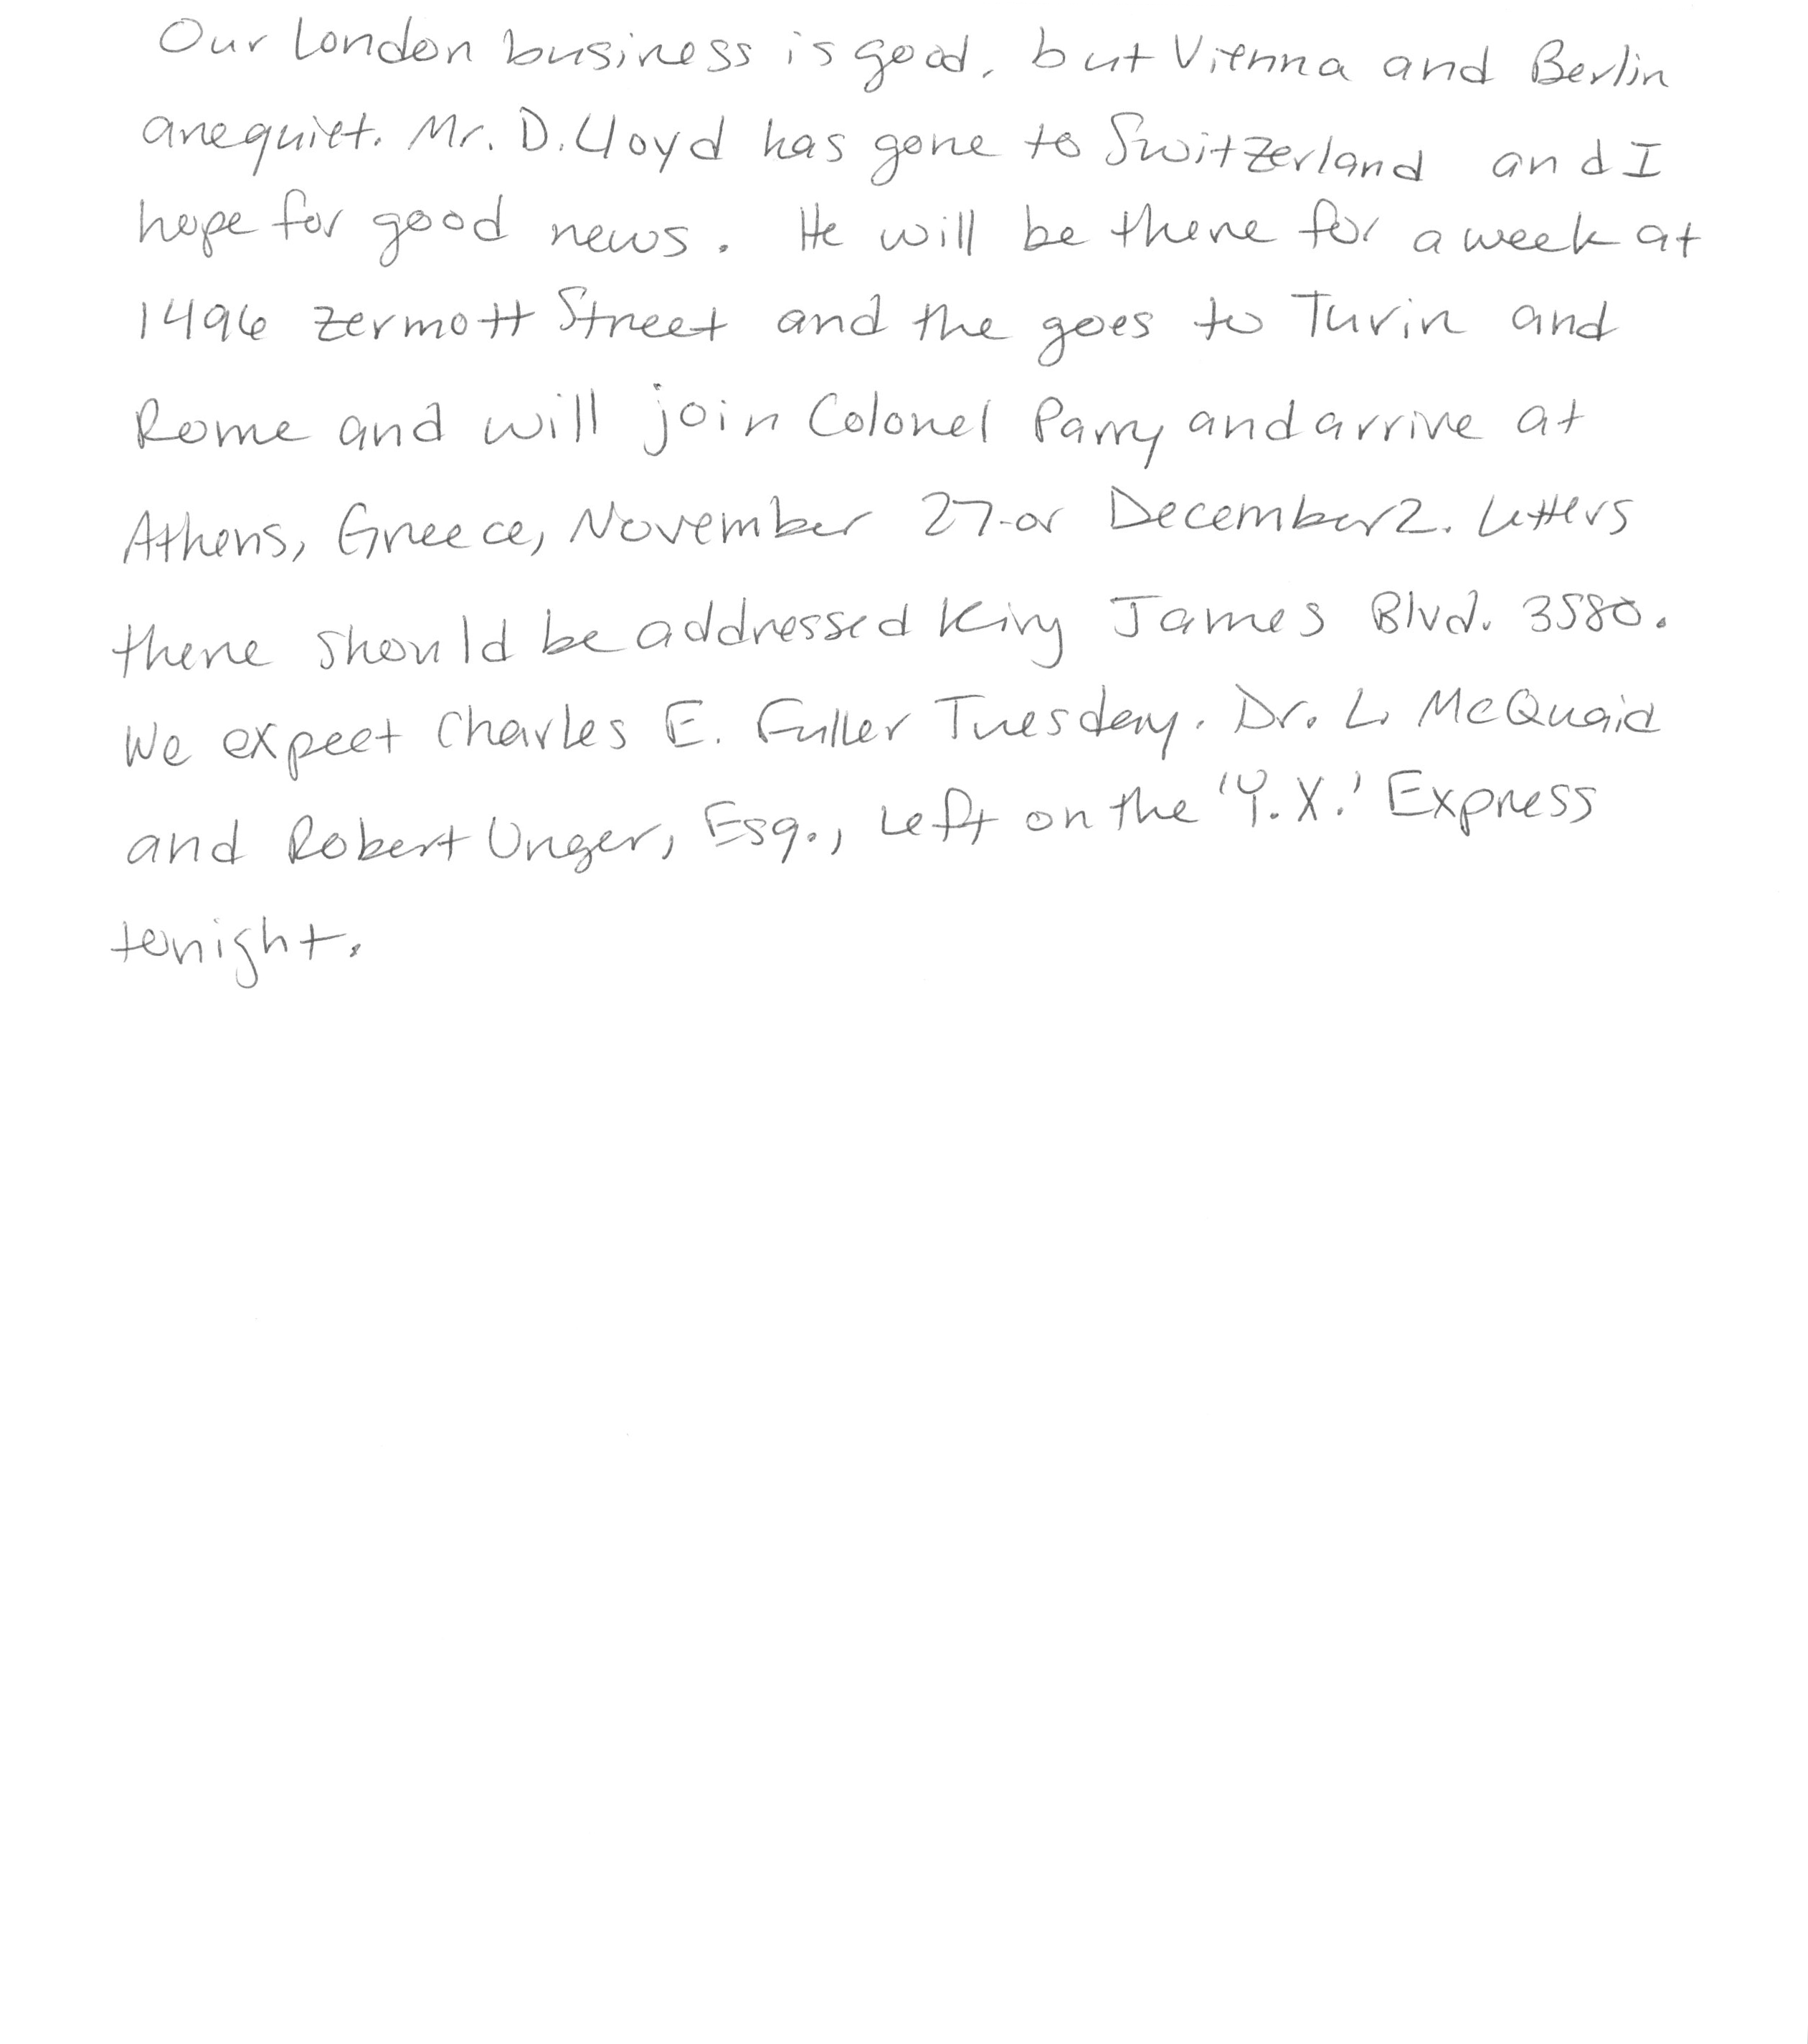 Our London business is good, but Vienna and Berlin
are quiet. Mr. D. Lloyd has gone to Switzerland and I
hope for good news. He will be there for a week at
1496 Zermott Street and the goes to Turin and
Rome and will join Colonel Parry and arrive at
Athens, Greece, November 27 or December 2. Letters
there should be addressed King James Blvd. 3580.
We expect Charles E. Fuller Tuesday. Dr. L. McQuaid
and Robert Unger, Esq., left on the 'Y.X.' Express
tonight.